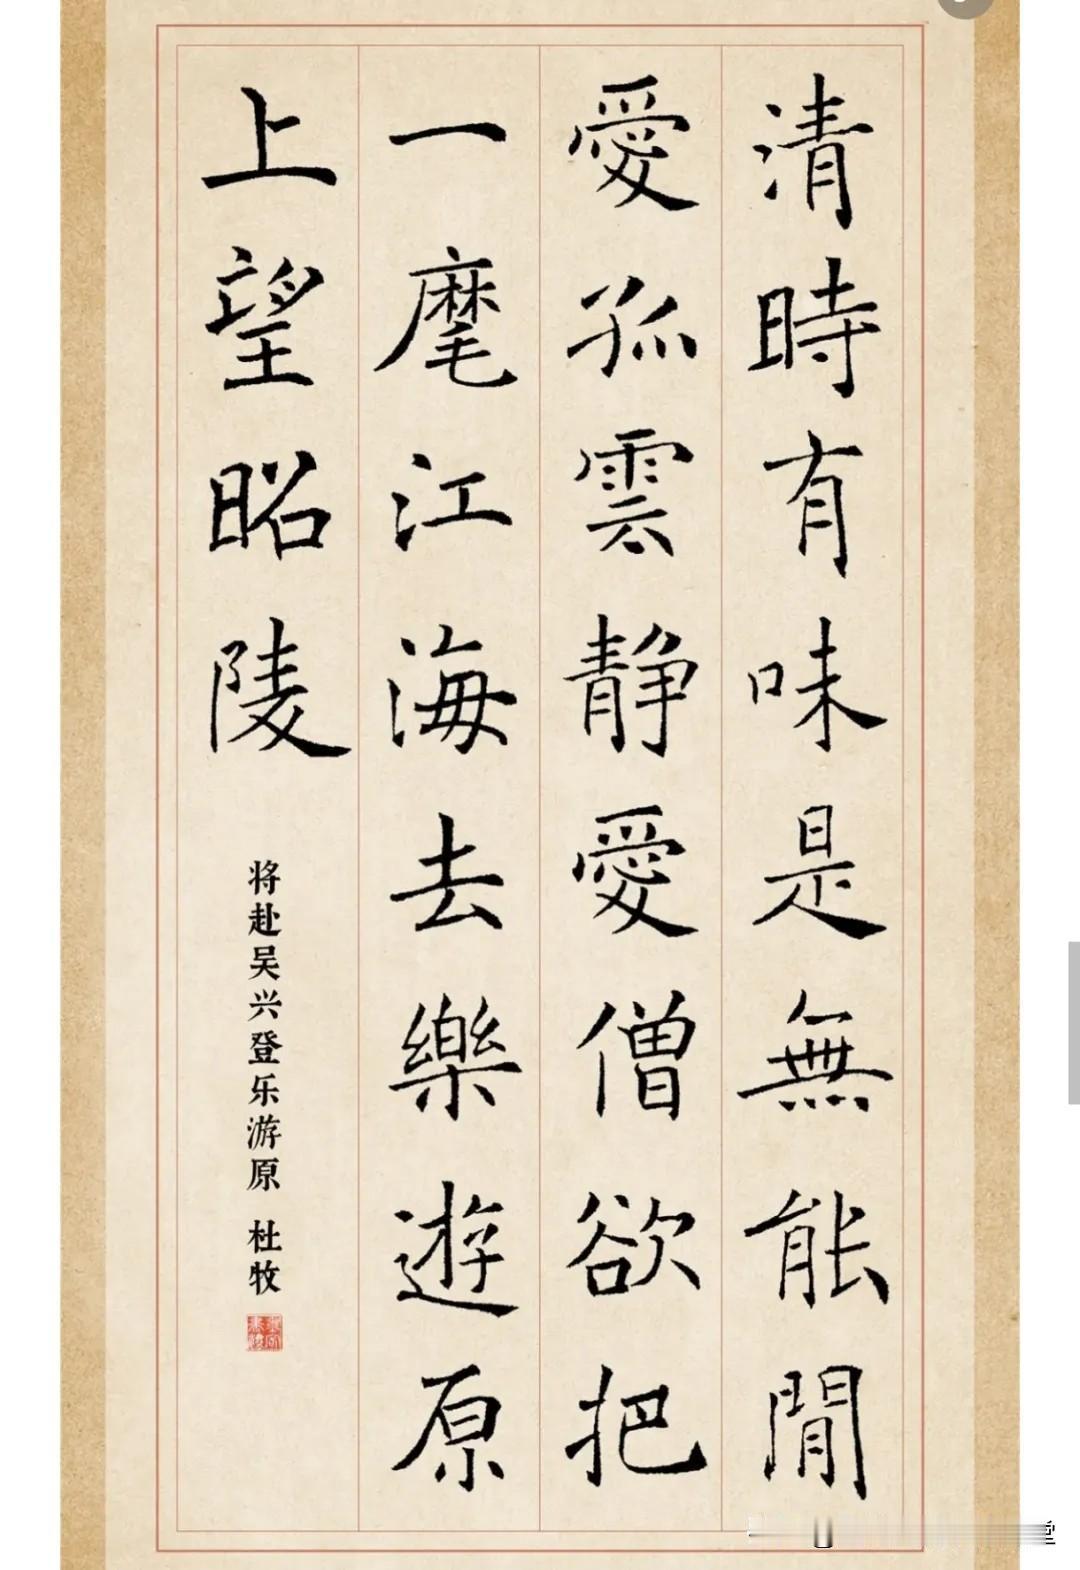 清時有味是無能閒
愛孤雲靜愛僧欲把
一麾江海去樂遊原
上望昭陵
将赴吴兴登乐游原 杜牧